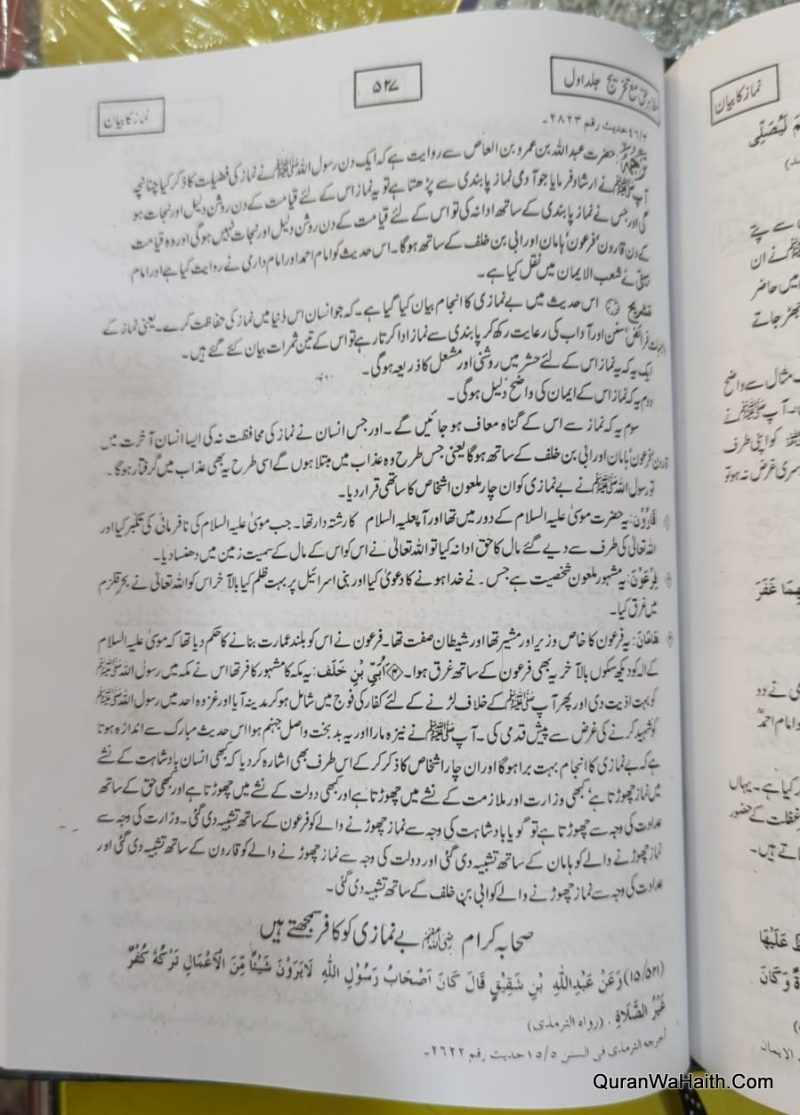 مظاہر حق مع تخریج جلد اول
۵۲۷
نماز کا بیان
۴۶/۳ حدیث رقم ۲۸۲۳۔
حضرت عبداللہ بن عمرو بن العاص سے روایت ہے کہ ایک دن رسول اللہ ﷺ نے نماز کی فضیلت کا ذکر کیا چنانچہ
آپ ﷺ نے ارشاد فرمایا جو آدمی نماز پابندی سے پڑھتا ہے تو یہ نماز اس کے لئے قیامت کے دن روشن دلیل اور نجات ہو
گی اور جس نے نماز پابندی کے ساتھ ادا نہ کی تو اس کے لئے قیامت کے دن روشن دلیل اور نجات نہیں ہوگی اور وہ قیامت
کے دن قارون، فرعون، ہامان اور ابی بن خلف کے ساتھ ہوگا۔ اس حدیث کو امام احمد اور امام دارمی نے روایت کیا ہے اور امام
بیہقی نے شعب الایمان میں نقل کیا ہے۔
تشریح اس حدیث میں بے نمازی کا انجام بیان کیا گیا ہے۔ کہ جو انسان اس دُنیا میں نماز کی حفاظت کرے۔ یعنی نماز کے
فرائض سنن اور آداب کی رعایت رکھ کر پابندی سے نماز ادا کرتا رہے تو اس کے تین ثمرات بیان کئے گئے ہیں۔
ایک یہ کہ یہ نماز اس کے لئے حشر میں روشنی اور مشعل کا ذریعہ ہوگی۔
دوم یہ کہ نماز اس کے ایمان کی واضح دلیل ہوگی۔
سوم یہ کہ نماز سے اس کے گناہ معاف ہو جائیں گے۔ اور جس انسان نے نماز کی محافظت نہ کی ایسا انسان آخرت میں
قارون، فرعون، ہامان اور ابی بن خلف کے ساتھ ہوگا یعنی جس طرح وہ عذاب میں مبتلا ہوں گے اسی طرح یہ بھی عذاب میں گرفتار ہوگا۔
تو رسول اللہ ﷺ نے بے نمازی کو ان چار ملعون اشخاص کا ساتھی قرار دیا۔
قَارُوْن: یہ حضرت موسیٰ علیہ السلام کے دور میں تھا اور آپ علیہ السلام کا رشتہ دار تھا۔ جب موسیٰ علیہ السلام کی نافرمانی کی تکبر کیا اور
اللہ تعالیٰ کی طرف سے دیے گئے مال کا حق ادا نہ کیا تو اللہ تعالیٰ نے اس کو اس کے مال کے سمیت زمین میں دھنسا دیا۔
فِرْعَوْن: یہ مشہور ملعون شخصیت ہے جس نے خدا ہونے کا دعویٰ کیا اور بنی اسرائیل پر بہت ظلم کیا بالآخر اس کو اللہ تعالیٰ نے بحر قلزم
میں غرق کیا۔
هَامَان: یہ فرعون کا خاص وزیر اور مشیر تھا اور شیطان صفت تھا۔ فرعون نے اس کو بلند عمارت بنانے کا حکم دیا تھا کہ موسیٰ علیہ السلام
کے الہ کو دیکھ سکوں بالآخر یہ بھی فرعون کے ساتھ غرق ہوا۔ ﴿۴﴾ اُبَیّ بِن خَلَف: یہ مکہ کا مشہور کافر تھا اس نے مکہ میں رسول اللہ ﷺ
کو بہت اذیت دی اور پھر آپ ﷺ کے خلاف لڑنے کے لئے کفار کی فوج میں شامل ہو کر مدینہ آیا اور غزوہ احد میں رسول اللہ ﷺ
کو شہید کرنے کی غرض سے پیش قدمی کی۔ آپ ﷺ نے نیزہ مارا اور یہ بد بخت واصل جہنم ہوا اس حدیث مبارک سے اندازہ ہوتا
ہے کہ بے نمازی کا انجام بہت برا ہوگا اور ان چار اشخاص کا ذکر کر کے اس طرف بھی اشارہ کر دیا کہ کبھی انسان بادشاہت کے نشے
میں نماز چھوڑتا ہے، کبھی وزارت اور ملازمت کے نشے میں چھوڑتا ہے اور کبھی دولت کے نشے میں چھوڑتا ہے اور کبھی حق کے ساتھ
عداوت کی وجہ سے چھوڑتا ہے تو گویا بادشاہت کی وجہ سے نماز چھوڑنے والے کو فرعون کے ساتھ تشبیہ دی گئی۔ وزارت کی وجہ سے
نماز چھوڑنے والے کو ہامان کے ساتھ تشبیہ دی گئی اور دولت کی وجہ سے نماز چھوڑنے والے کو قارون کے ساتھ تشبیہ دی گئی اور
عداوت کی وجہ سے نماز چھوڑنے والے کو ابی بن خلف کے ساتھ تشبیہ دی گئی۔
صحابہ کرام رضی اللہ عنہم بے نمازی کو کافر سمجھتے ہیں
(۱۵/۵۴۱) وَعَنْ عَبْدِاللّٰهِ بْنِ شَقِيْقٍ قَالَ كَانَ اَصْحَابُ رَسُوْلِ اللّٰهِ لَايَرَوْنَ شَيْئًا مِّنَ الْاَعْمَالِ تَرْكُهُ كُفْرٌ
غَيْرُ الصَّلَاةِ. (رواه الترمذی)
أخرجه الترمذی فی السنن ۱۵/۵ حدیث رقم ۲۶۲۲۔
نماز کا بیان
QuranWaHaith.Com